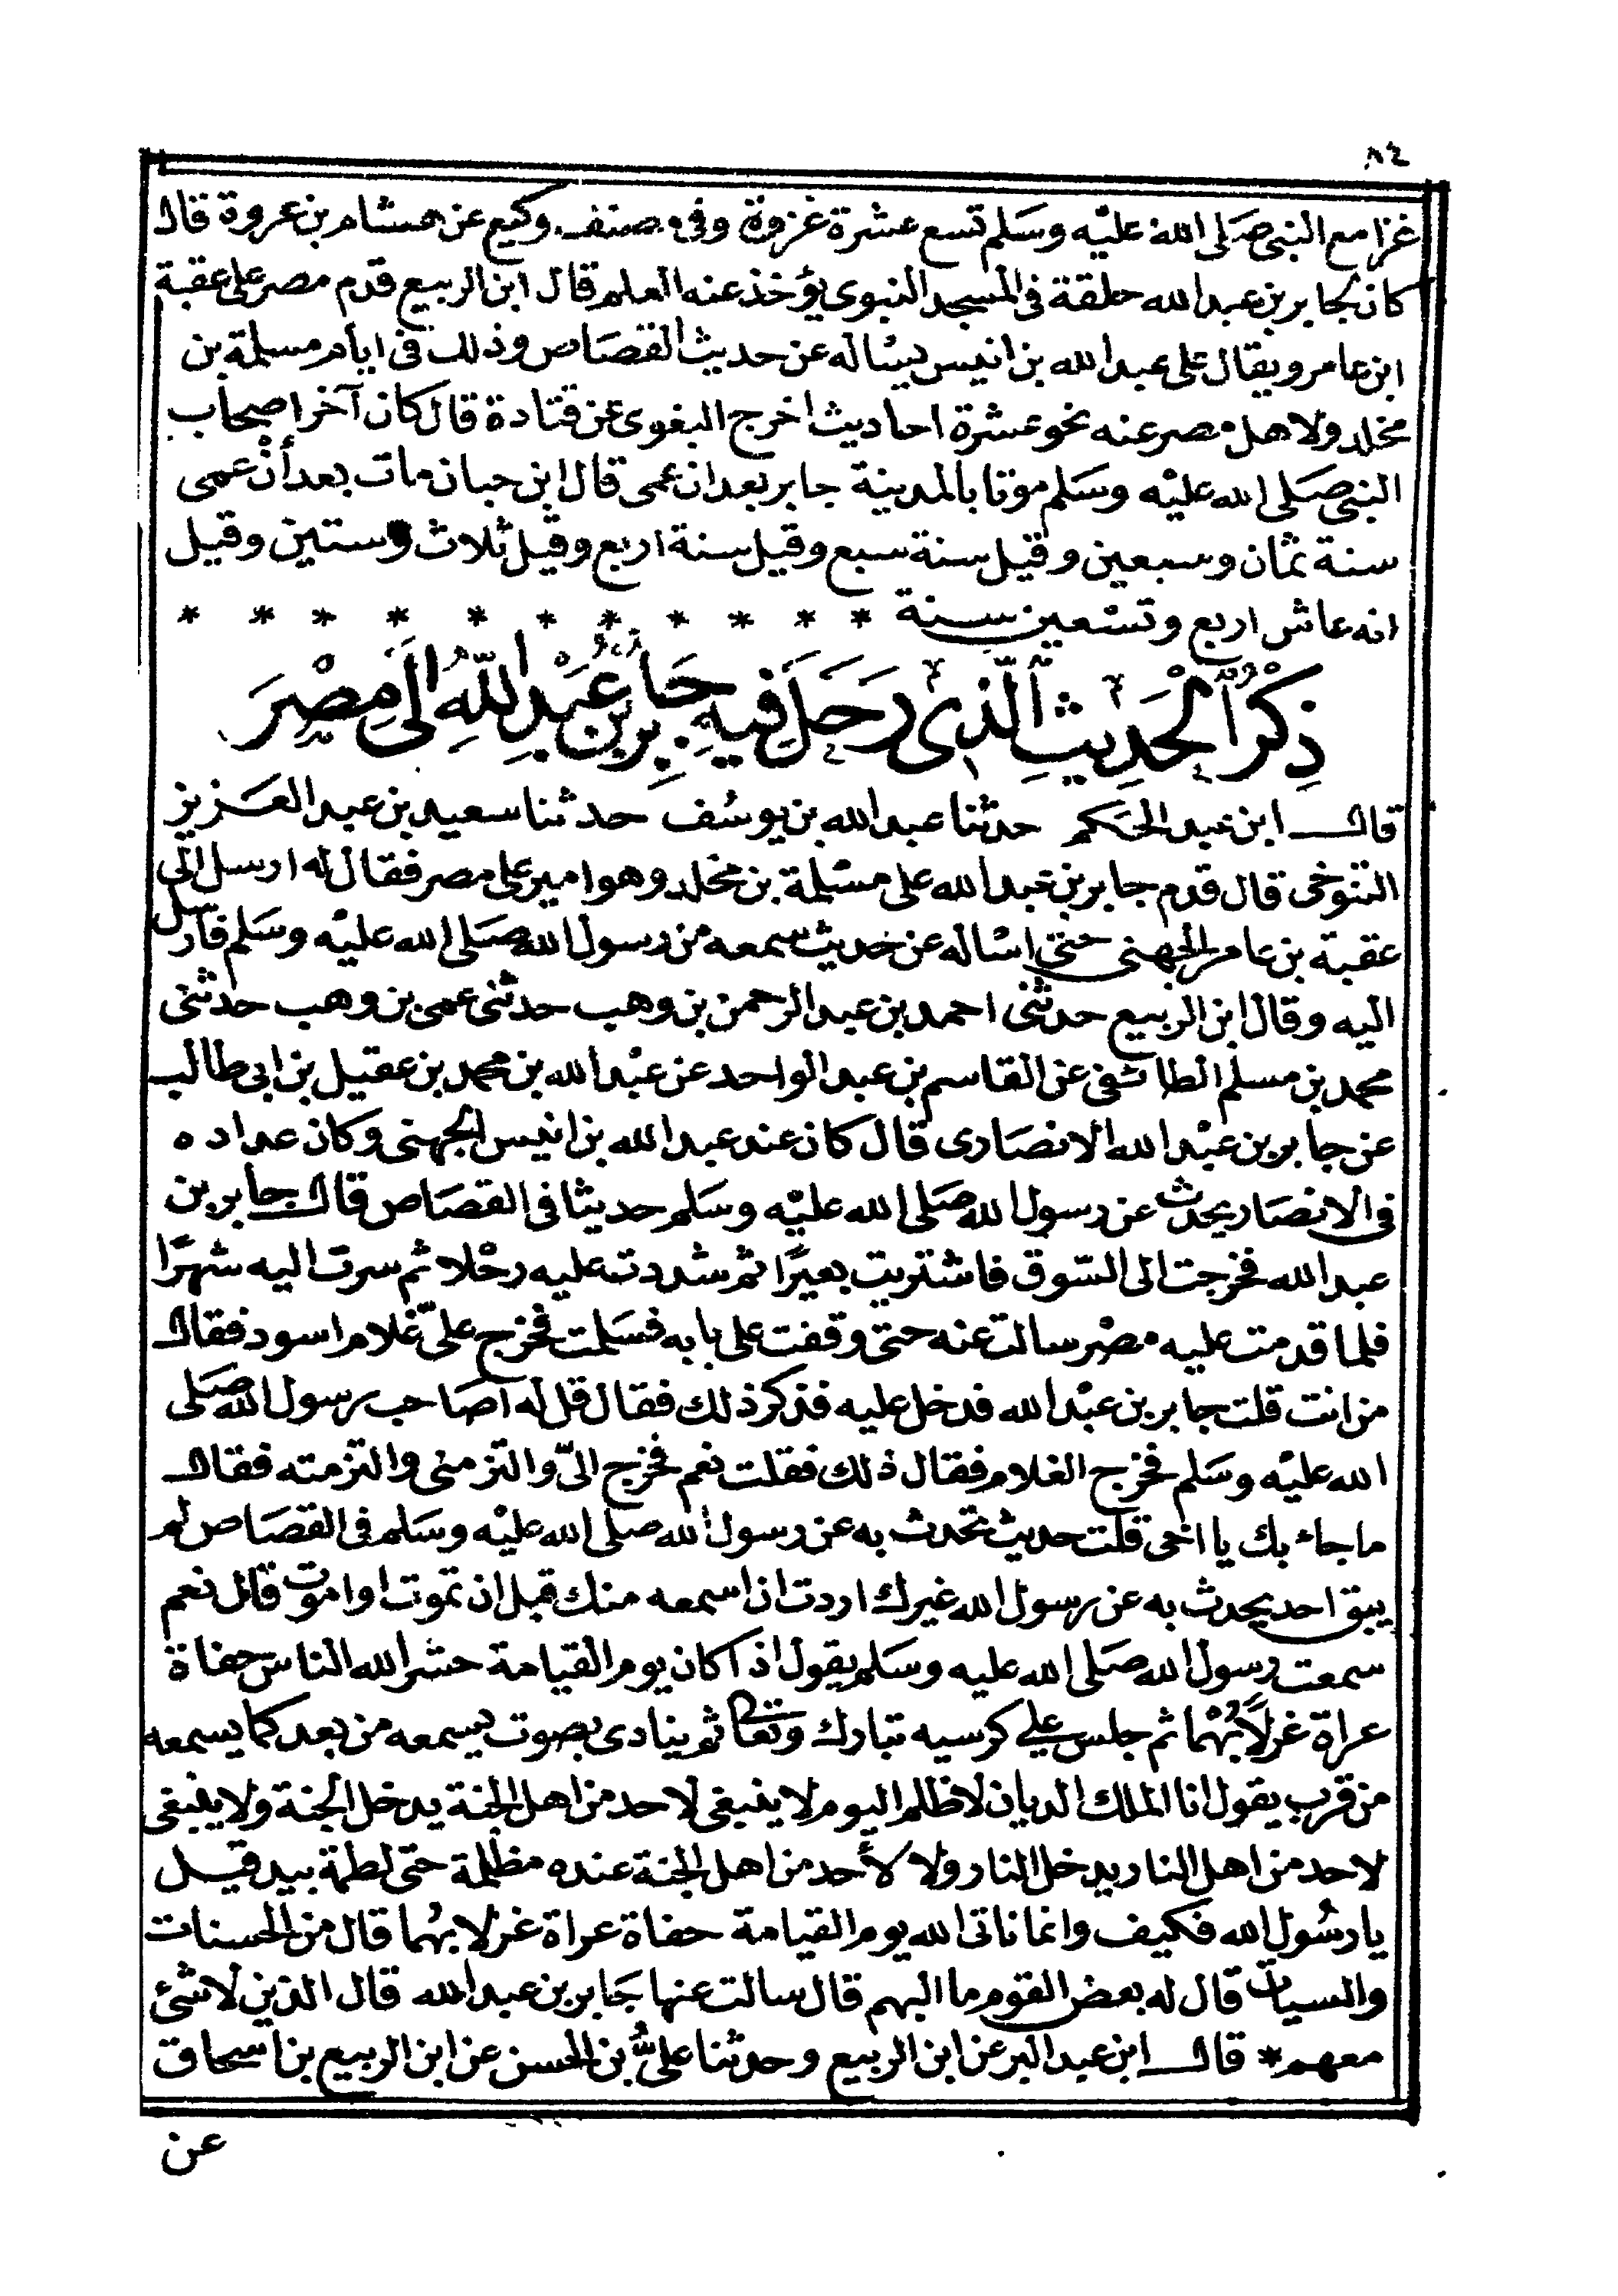 ٨٤
غزا مع النبى صَلى الله عليْه وسَلم تسع عشرة غزوة وفى مصنف وكيع عن هشام بن عروة قال
كان لجابر بن عبد الله حلقة فى المسجد النبوى يؤخذ عنه العلم قال ابن الربيع قدم مصر على عقبة
ابن عامر ويقال على عبد الله بن انيس يسْاله عن حديث القصَاص وذلك فى ايام مسلمة بن
مخلد ولاهل مصر عنه نحو عشرة احاديث اخرج البغوى عن قتادة قال كان آخر اصحاب
النبى صَلى الله عليْه وسَلم موتا بالمدينة جابر بعد ان عمى قال ابن حبان مات بعد أنْ عمى
سنة ثمان وسبعين وقيل سنة سبع وقيل سنة اربع وقيل ثلاث وستين وقيل
انه عاش اربع وتسْعين سنة * * * * * * * * * * *
ذِكْرُ الْحَدِيثِ الَّذِى رَحَلَ فِيهِ جَابِرُ بْنُ عَبْدِ اللّٰهِ اِلَى مِصْرَ
قال ابن عبد الحكم حدثنا عبد الله بن يوسُف حدثنا سعيد بن عبد العزيز
التنوخى قال قدم جابر بن عبد الله على مسْلمة بن مخلد وهو امير على مصر فقال له ارسل الى
عقبة بن عامر الجهنى حتى اسْاله عن حديث سمعه من رسول الله صَلى الله عليْه وسَلم فارسل
اليه وقال ابن الربيع حدثنى احمد بن عبد الرحمن بن وهب حدثنى عمى بن وهب حدثنى
محمد بن مسلم الطائفى عن القاسم بن عبد الواحد عن عبْد الله بن محمد بن عقيل بن ابى طالب
عن جابر بن عبْد الله الانصَارى قال كان عند عبد الله بن انيس الجهنى وكان عداده
فى الانصَار يحدث عن رسول الله صَلى الله عليْه وسَلم حديثا فى القصَاص قال جابر بن
عبد الله فخرجت الى السّوق فاشتريت بعيرًا ثم شددت عليه رحْلا ثم سرت اليه شهرًا
فلما قدمت عليه مصْر سالت عنه حتى وقفت على بابه فسَلمت فخرج علىّ غلام اسود فقال
من انت قلت جابر بن عبْد الله فدخل عليه فذكر ذلك فقال قل له أصَاحب رسول الله صَلى
الله عليْه وسَلم فخرج الغلام فقال ذلك فقلت نعم فخرج الىّ والتزمنى والتزمته فقال
ما جاء بك يا اخى قلت حديث تحدث به عن رسول الله صلى الله عليْه وسَلم فى القصَاص لم
يبق احد يحدث به عن رسول الله غيرك اردت ان اسمعه منك قبل ان تموت او اموت قال نعم
سمعت رسول الله صَلى الله عليه وسَلم يقول اذا كان يوم القيامة حشر الله الناس حفاة
عراة غرلًا بُهْما ثم جلس على كرسيه تبارك وتعا ثم ينادى بصوت يسمعه من بعد كما يسمعه
من قرب يقول انا الملك الديان لا ظلم اليوم لا ينبغى لاحد من اهل الجنة يدخل الجنة ولا ينبغى
لاحد من اهل النار يدخل النار ولا لأحد من اهل الجنة عنده مظلمة حتى لطمة بيد قيل
يا رسُول الله فكيف وانما ناتى الله يوم القيامة حفاة عراة غرلا بهُما قال من الحسنات
والسيات قال له بعض القوم ما البهم قال سالت عنها جَابر بن عبد الله قال الذين لا شئ
معهم * قال ابن عبد البر عن ابن الربيع وحدثنا علىُّ بن الحسن عن ابن الربيع بن اسحاق
عن